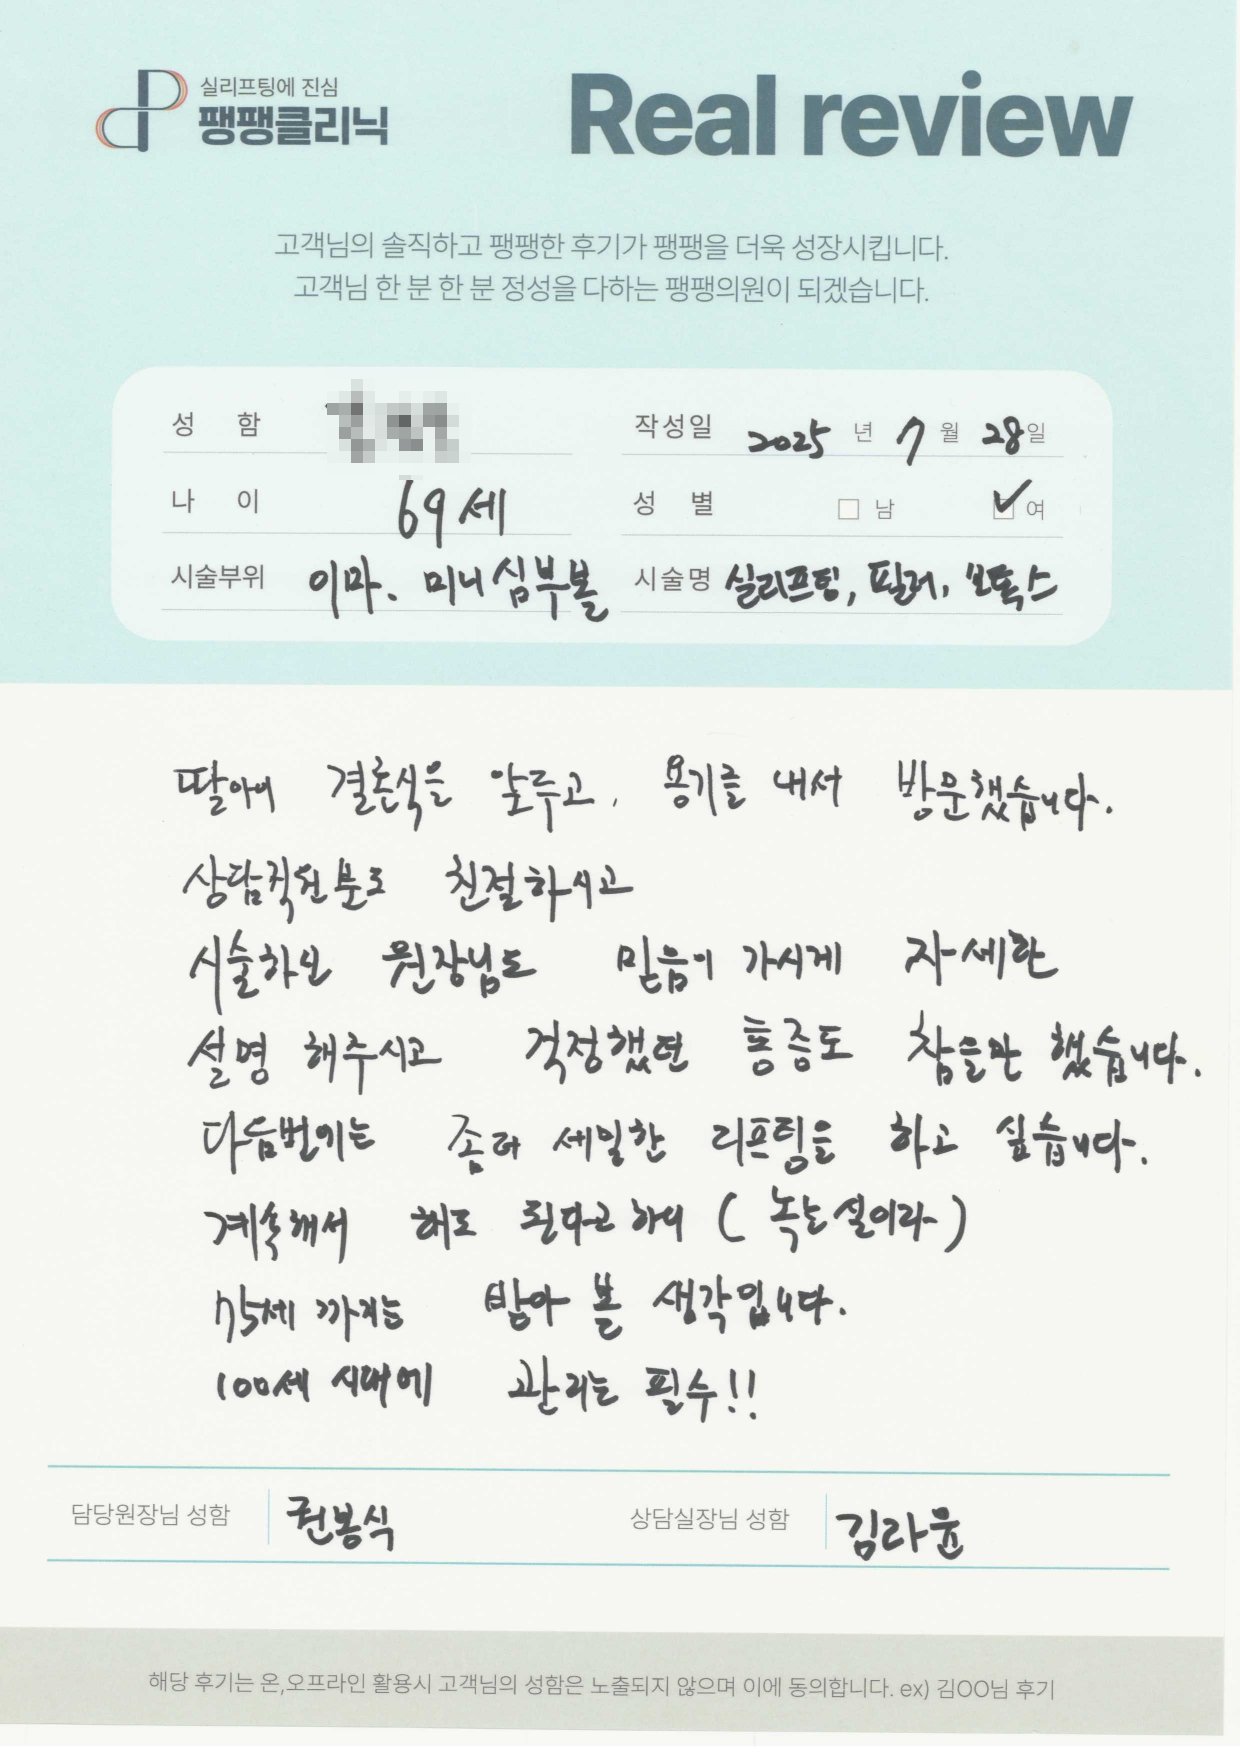 실리프팅에 진심
팽팽클리닉
Real review
고객님의 솔직하고 팽팽한 후기가 팽팽을 더욱 성장시킵니다.
고객님 한 분 한 분 정성을 다하는 팽팽의원이 되겠습니다.
성 함 작성일 2025 년 7 월 28 일
나 이 69세 성 별 남 ✓ 여
시술부위 이마, 미니심부볼 시술명 실리프팅, 필러, 보톡스
딸아이 결혼식을 앞두고, 용기를 내서 방문했습니다.
상담직원분도 친절하시고
시술하신 원장님도 믿음이 가시게 자세한
설명 해주시고 걱정했던 통증도 참을만 했습니다.
다음번에는 좀더 세밀한 리프팅을 하고 싶습니다.
계속해서 해도 된다고 하니 ( 녹는실이라 )
75세 까지는 받아 볼 생각입니다.
100세 시대에 관리는 필수!!
담당원장님 성함 권봉식 상담실장님 성함 김라윤
해당 후기는 온,오프라인 활용시 고객님의 성함은 노출되지 않으며 이에 동의합니다. ex) 김OO님 후기